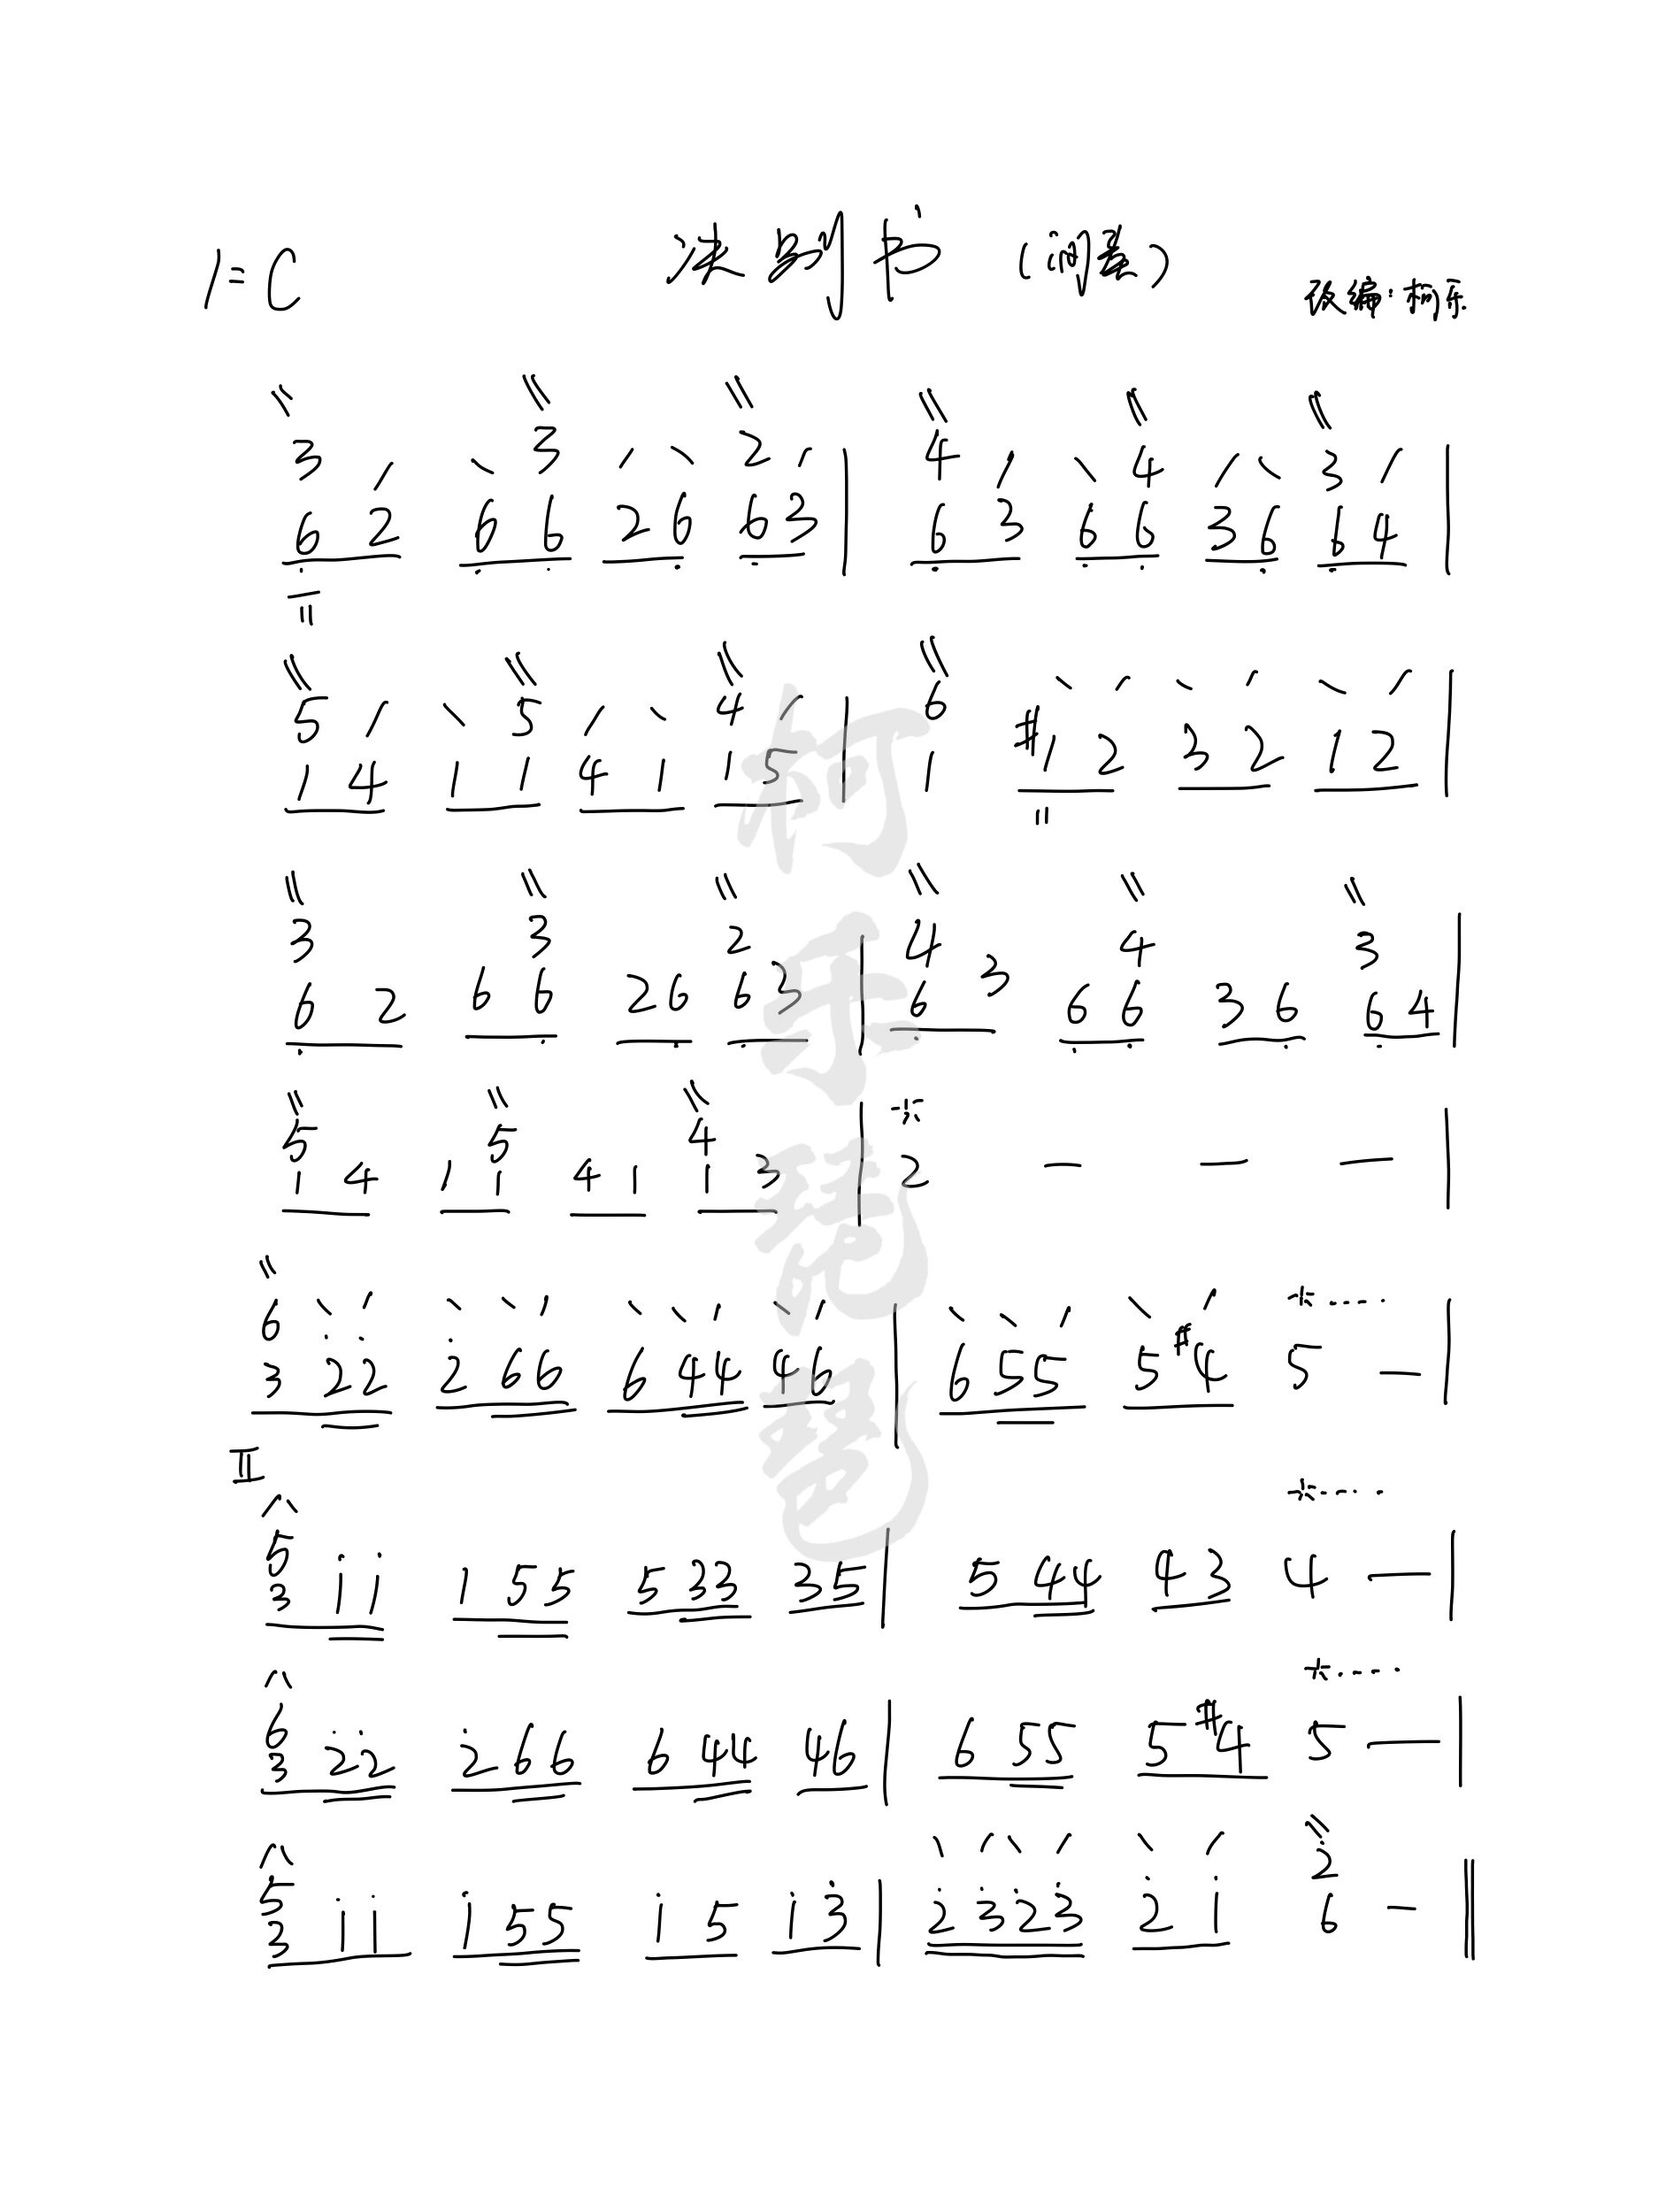 1=C 决别书 (间奏)
改编·柯乐
3 3 2 4 4 3
6 2 6 6 2 6 6 3 | 6 3 6 6 3 6 6 4 |
5 5 4 6
1 4 1 1 4 1 1 5 | 1 #1 2 3 2 1 2 |
3 3 2 4 4 3
6 2 6 6 2 6 6 3 | 6 3 6 6 3 6 6 4 |
5 5 4
1 4 1 1 4 1 1 3 | 2 — — — |
6
3 2̇ 2̇ 2̇ 6 6 6 4 4 4 6 | 6 5 5 5 #4 5 — |
II
5
3 i i 1 5 5 5 3 3 3 5 | 5 4 4 4 3 4 — |
6
3 2̇ 2̇ 2̇ 6 6 6 4 4 4 6 | 6 5 5 5 #4 5 — |
5 2̇
3 i i i 5 5 i 5 i 3̇ | 2̇ 3̇ 2̇ 3̇ 2̇ i 6 — ‖
柯乐琵琶